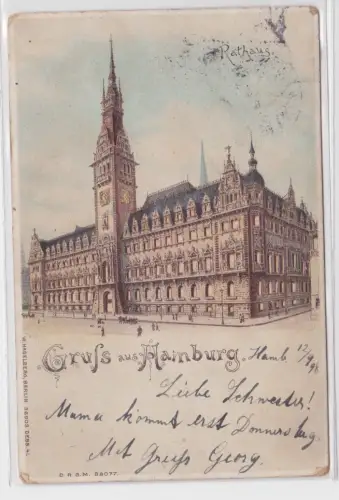 Rathaus.
Gruss aus Hamburg.
Hamb 12/9 98
Liebe Schwester!
Mama kommt erst Donnerstag.
Mit Gruß Georg.
W. HAGELBERG, BERLIN
D.R.G.M. 88077.